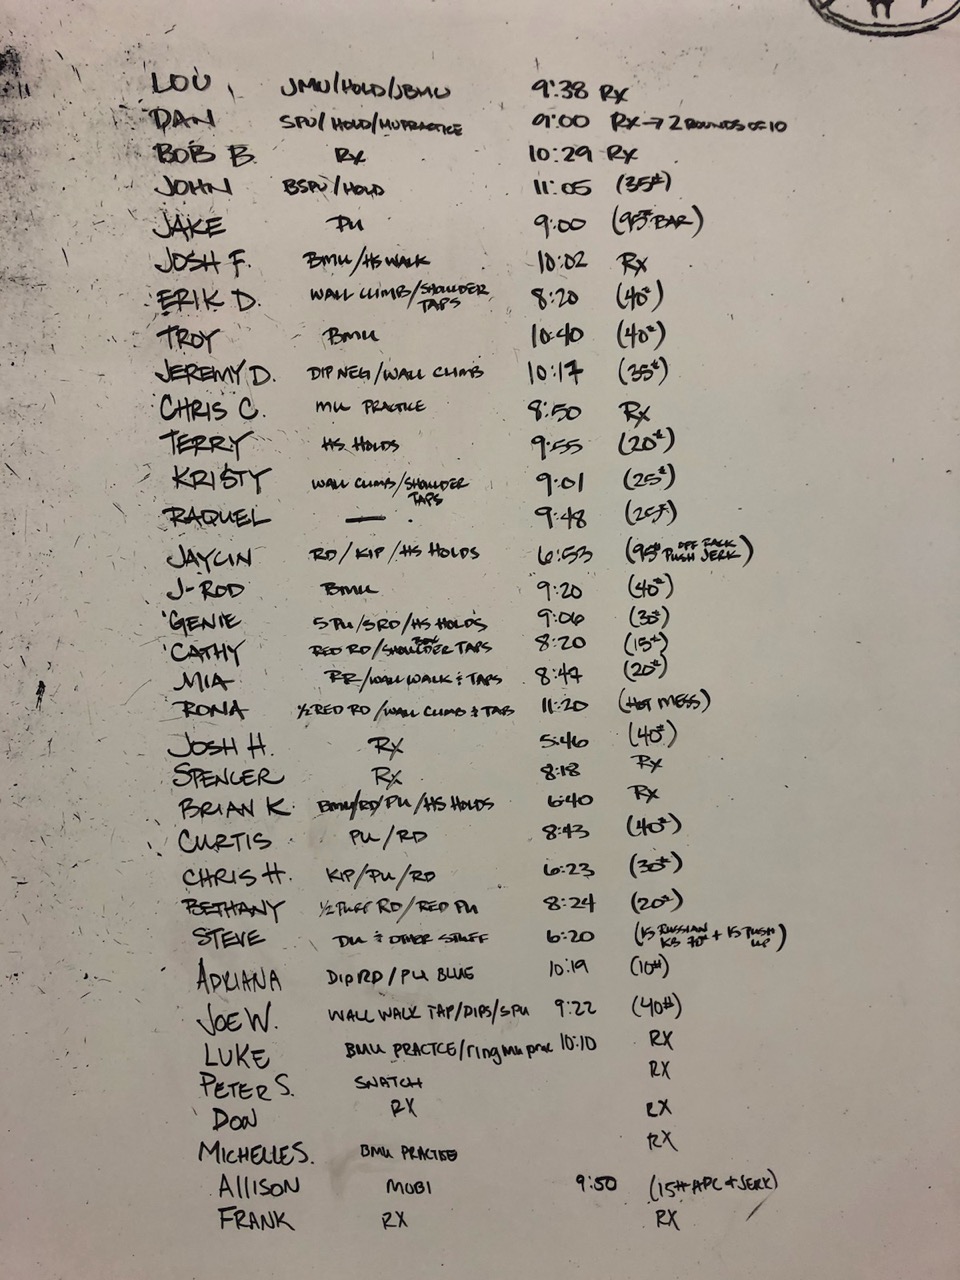 LOU JMU/HOLD/JBMU 9:38 RX
DAN SPU/HOLD/MU PRACTICE 9:00 RX → 2 ROUNDS OF 10
BOB B. RX 10:29 RX
JOHN BSPU/HOLD 11:05 (35#)
JAKE PU 9:00 (95# BAR)
JOSH F. BMU/HS WALK 10:02 RX
ERIK D. WALL CLIMB/SHOULDER TAPS 8:20 (40#)
TROY BMU 10:40 (40#)
JEREMY D. DIP NEG/WALL CLIMB 10:17 (35#)
CHRIS C. MU PRACTICE 8:50 RX
TERRY HS HOLDS 9:55 (20#)
KRISTY WALL CLIMB/SHOULDER TAPS 9:01 (25#)
RAQUEL — 9:48 (25#)
JAYLIN RD/KIP/HS HOLDS 6:53 (95# OFF RACK PUSH JERK)
J-ROD BMU 9:20 (40#)
GENIE 5 PU/5RD/HS HOLDS 9:06 (30#)
CATHY RED RD/BOX SHOULDER TAPS 8:20 (15#)
MIA RR/WALL WALK & TAPS 8:47 (20#)
RONA 1/2 RED RD/WALL CLIMB & TAB 11:20 (HOT MESS)
JOSH H. RX 5:46 (40#)
SPENCER RX 8:18 RX
BRIAN K. BMU/RD/PU/HS HOLDS 6:40 RX
CURTIS PU/RD 8:43 (40#)
CHRIS H. KIP/PU/RD 6:23 (30#)
BETHANY 1/2 RD/RED PU 8:24 (20#)
STEVE DU & OTHER STUFF 6:20 (15 RUSSIAN KB 70# + 15 PUSH UP)
ADRIANA DIP RD/PU BLUE 10:19 (10#)
JOE W. WALL WALK TAP/DIPS/SPU 9:22 (40#)
LUKE BMU PRACTCE/ring mu prac 10:10 RX
PETER S. SNATCH RX
DON RX RX
MICHELLE S. BMU PRACTICE RX
ALLISON MOBI 9:50 (15# APC + JERK)
FRANK RX RX